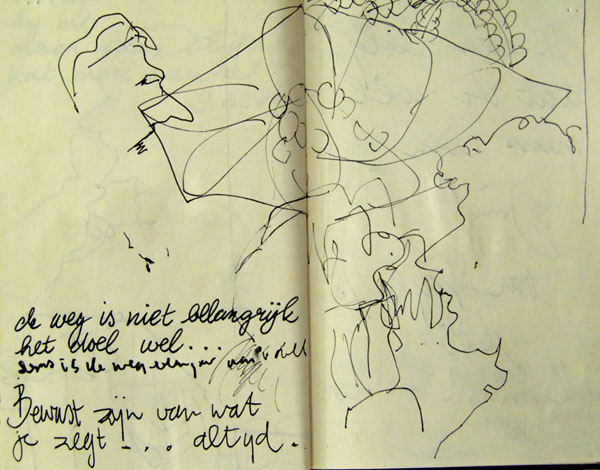 de weg is niet belangrijk
het doel wel...
soms is de weg
Bewust zijn van wat
je zegt ... altyd.